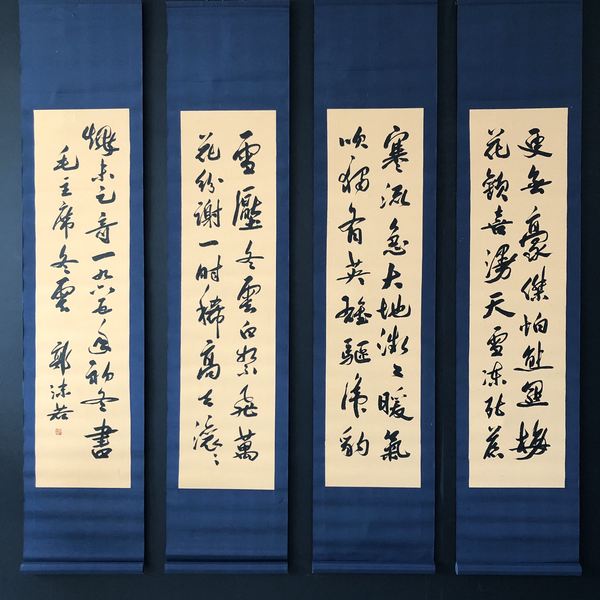 雪壓冬雲白絮飛萬
花紛謝一時稀高天滾〻
寒流急大地微〻暖氣
吹獨有英雄驅虎豹
更無豪傑怕熊羆梅
花歡喜漫天雪凍死蒼
蠅未足奇一九六五年初冬書
毛主席冬雲 郭沫若